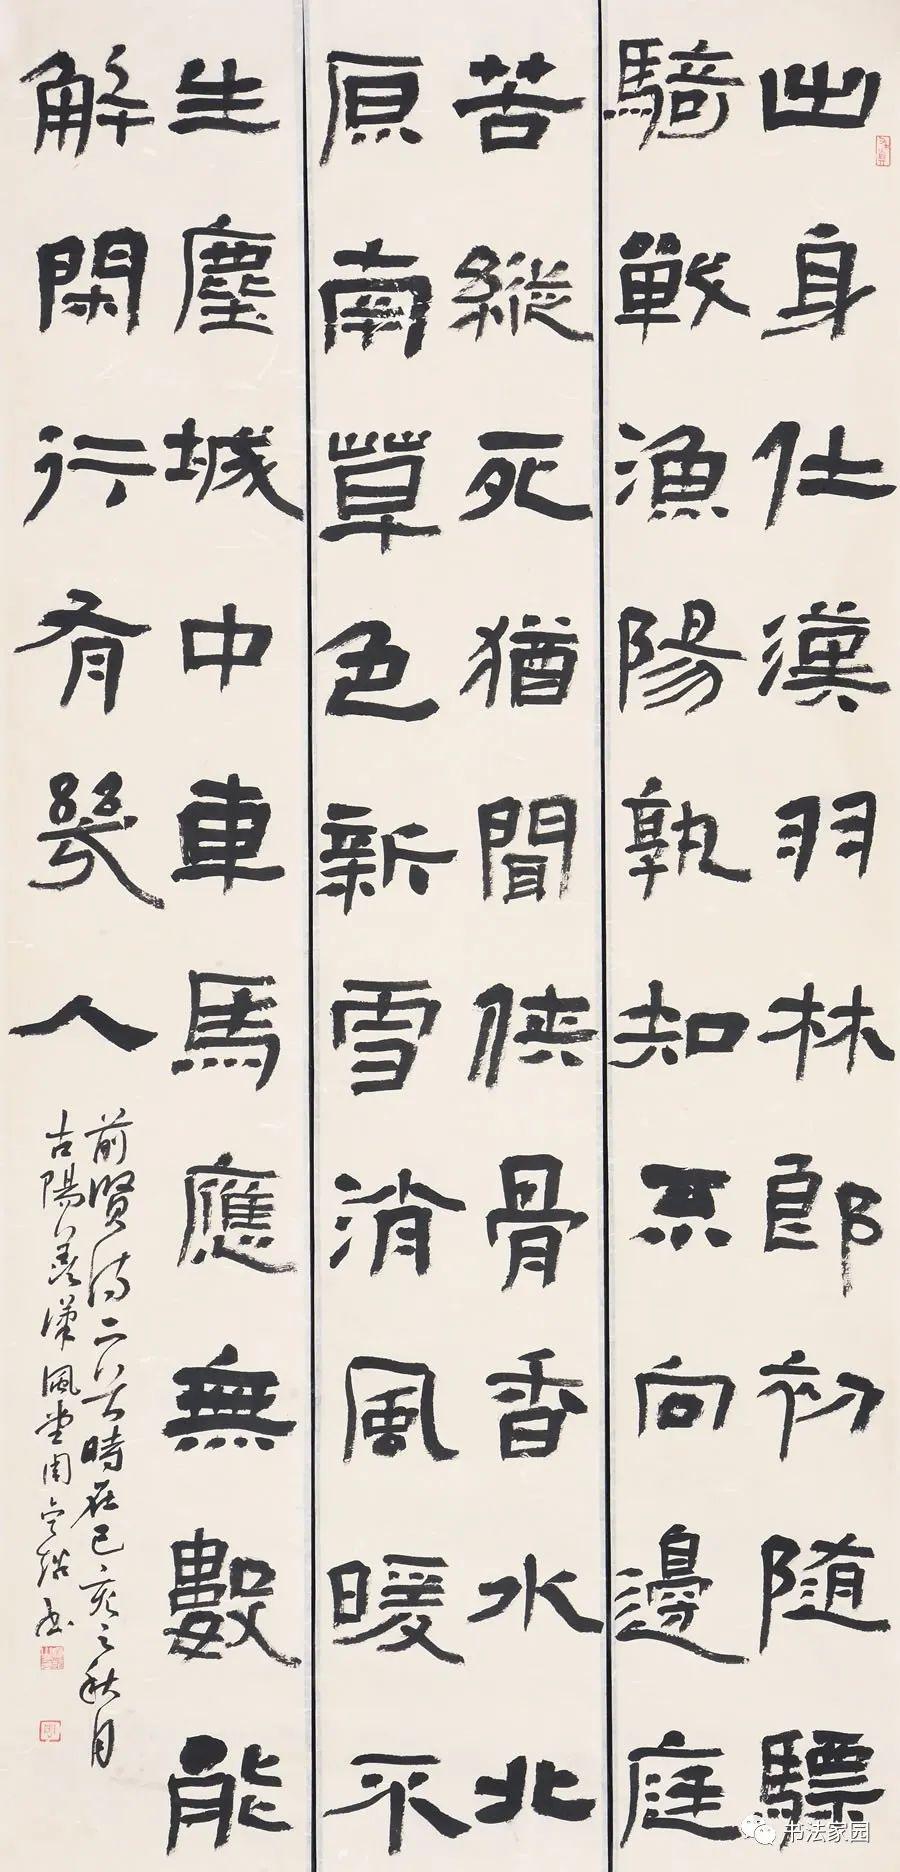 出身仕漢羽林郎初随驃
騎戰漁陽孰知不向邊庭
苦縱死猶聞俠骨香水北
原南草色新雪消風暖不
生塵城中車馬應無數能
解閑行有幾人
前賢詩二首時在己亥之秋月
古陽羨漢風堂周
书法家园